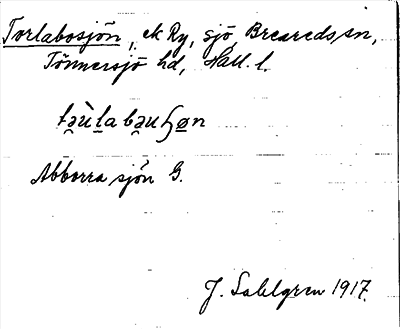 Torlabosjön, ek Ry, sjö Breareds sn,
Tönnersjö hd, Hall. l.
Abborrasjön G.
J. Sahlgren 1917.